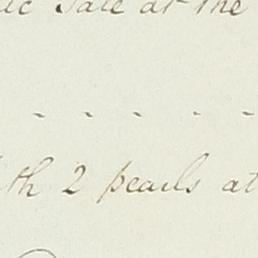 Sale at the
- - - - -
th 2 pearls at